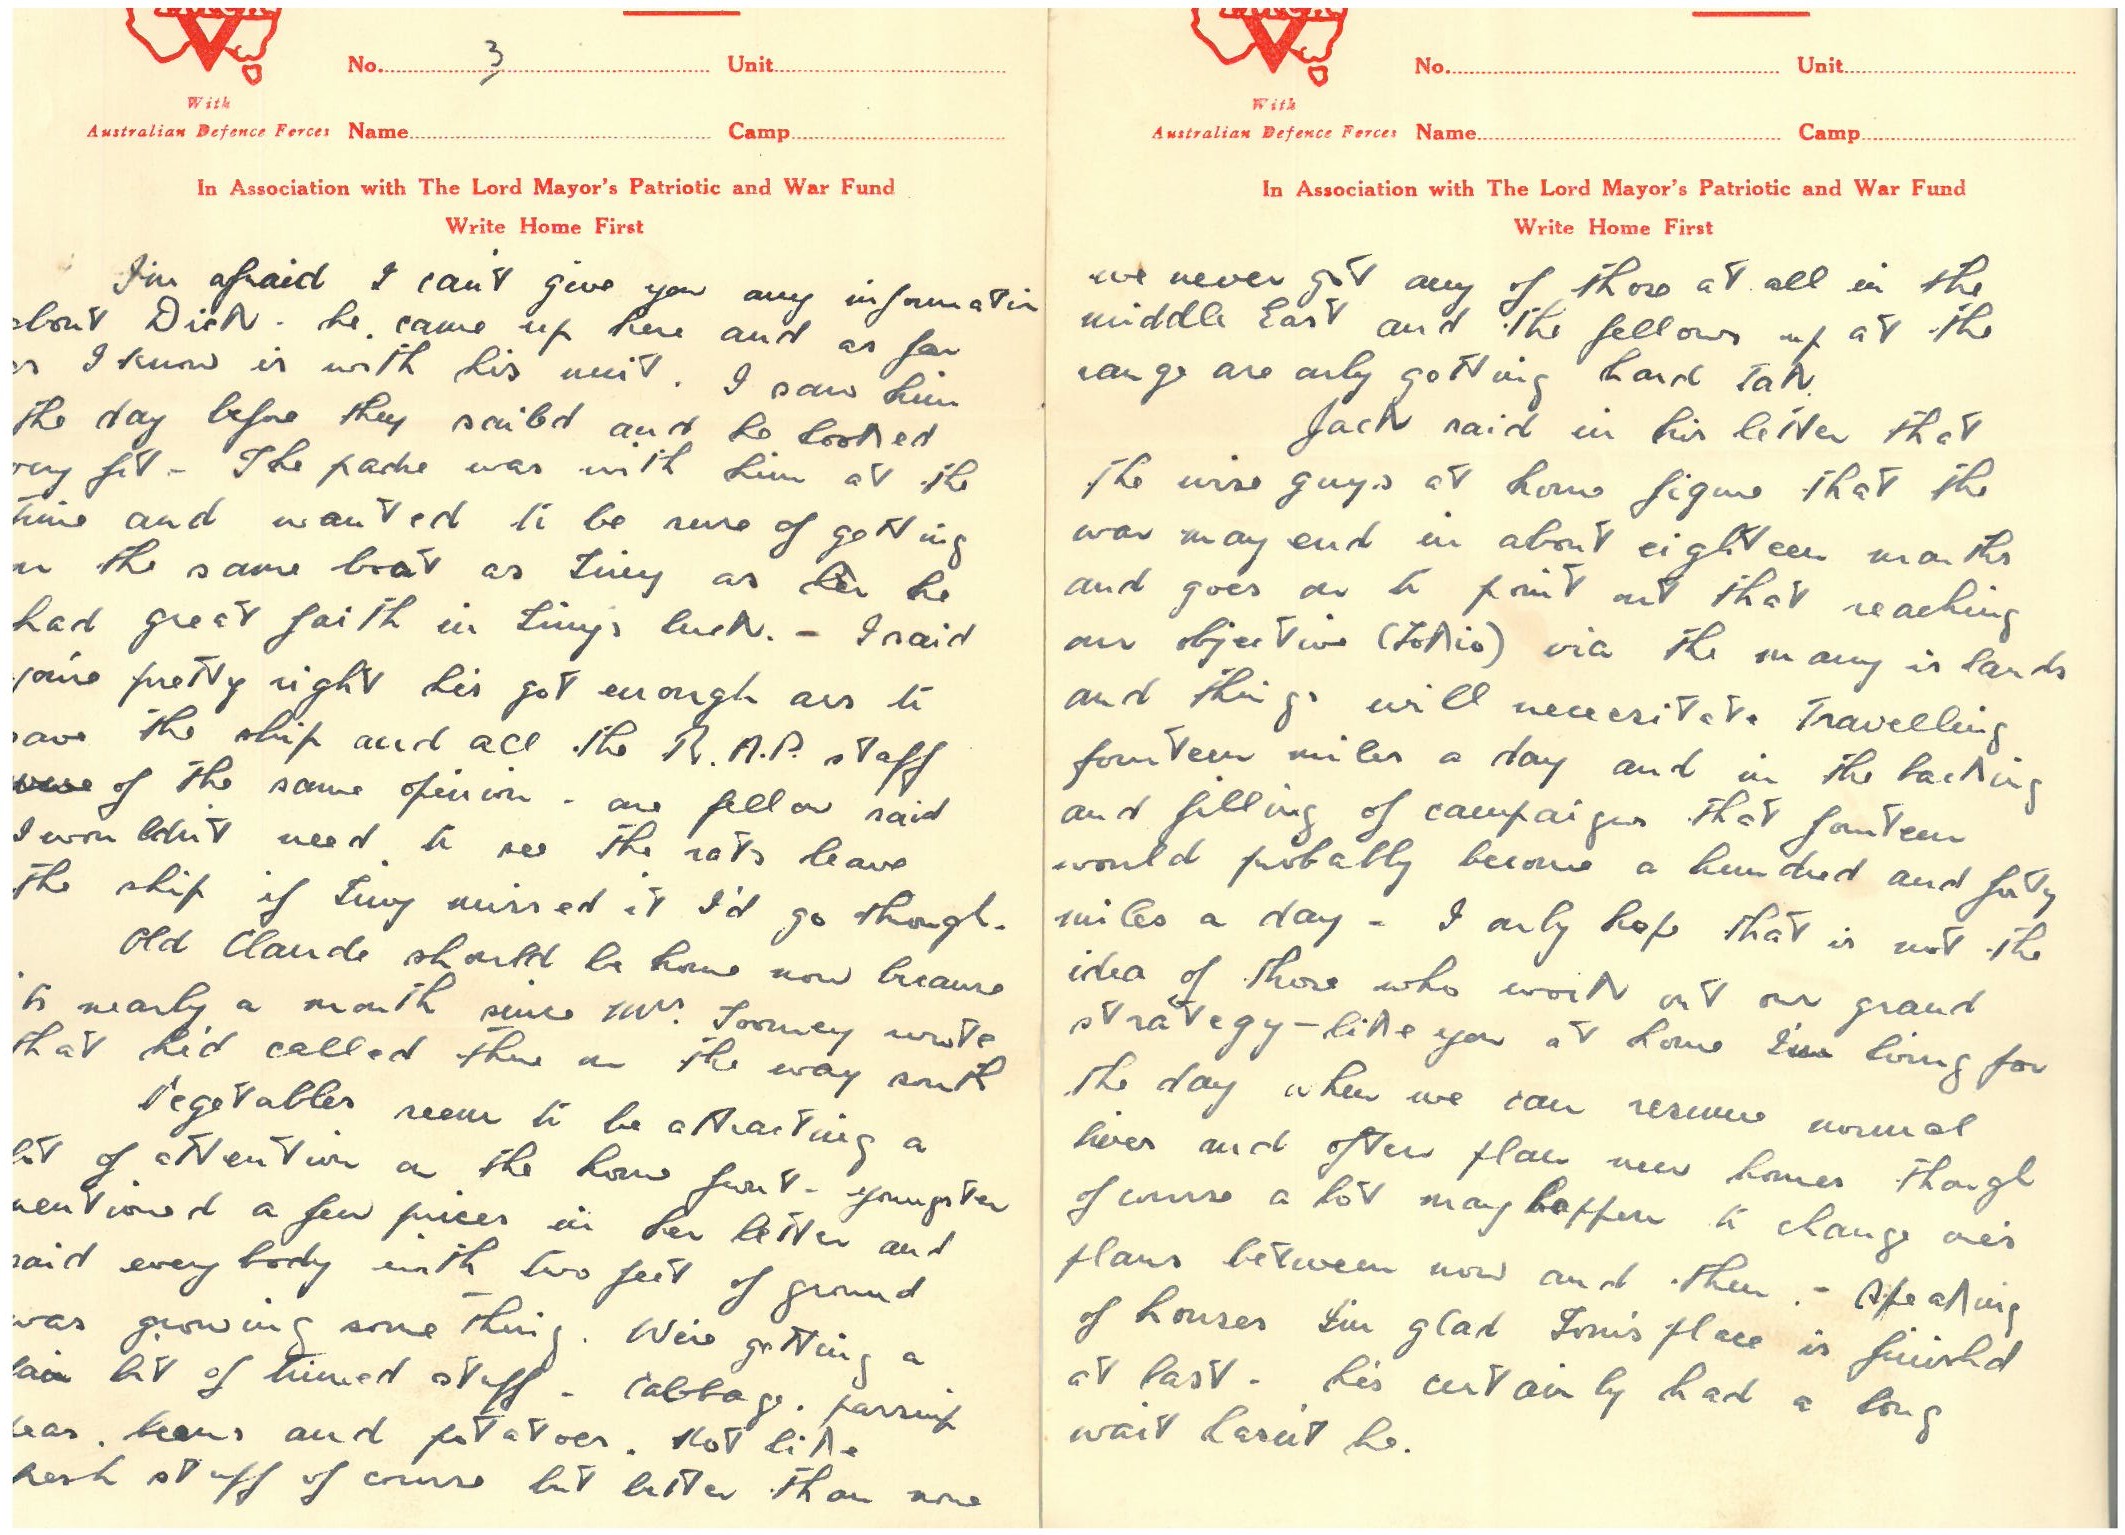 No. 3 Unit
With
Australian Defence Forces Name Camp
In Association with The Lord Mayor's Patriotic and War Fund
Write Home First
I'm afraid I can't give you any information
about Dick - he came up here and as far
as I know is with his unit. I saw him
the day before they sailed and he looked
very fit - The padre was with him at the
time and wanted to be sure of getting
on the same boat as Tiny as he
had great faith in Tiny's luck. - I said
you're pretty right his got enough ars to
save the ship and all the R.A.P. staff
were of the same opinion - one fellow said
I wouldn't need to see the rats leave
the ship if Tiny missed it I'd go though.
Old Claude should be home now because
its nearly a month since Mrs. Toomey wrote
that he'd called there on the way south
Vegetables seem to be attracting a
bit of attention on the home front - youngster
mentioned a few prices in her letter and
said everybody with two feet of ground
was growing something. We're getting a
fair bit of tinned stuff - Cabbage, parsnip
peas, beans and potatoes. Not like
fresh stuff of course but better than none
No. Unit
With
Australian Defence Forces Name Camp
In Association with The Lord Mayor's Patriotic and War Fund
Write Home First
we never got any of those at all in the
middle East and the fellows up at the
range are only getting hard tak.
Jack said in his letter that
the wise guys at home figure that the
war may end in about eighteen months
and goes on to point out that reaching
our objective (Tokio) via the many islands
and things will necesitate travelling
fourteen miles a day and in the backing
and filling of campaigns that fourteen
would probably become a hundred and forty
miles a day - I only hope that is not the
idea of those who work out our grand
strategy - like you at home I'm living for
the day when we can resume normal
lives and often plan new homes though
of course a lot may happen to change ones
plans between now and then. - Speaking
of houses I'm glad Tom's place is finished
at last - his certainly had a long
wait hasn't he.